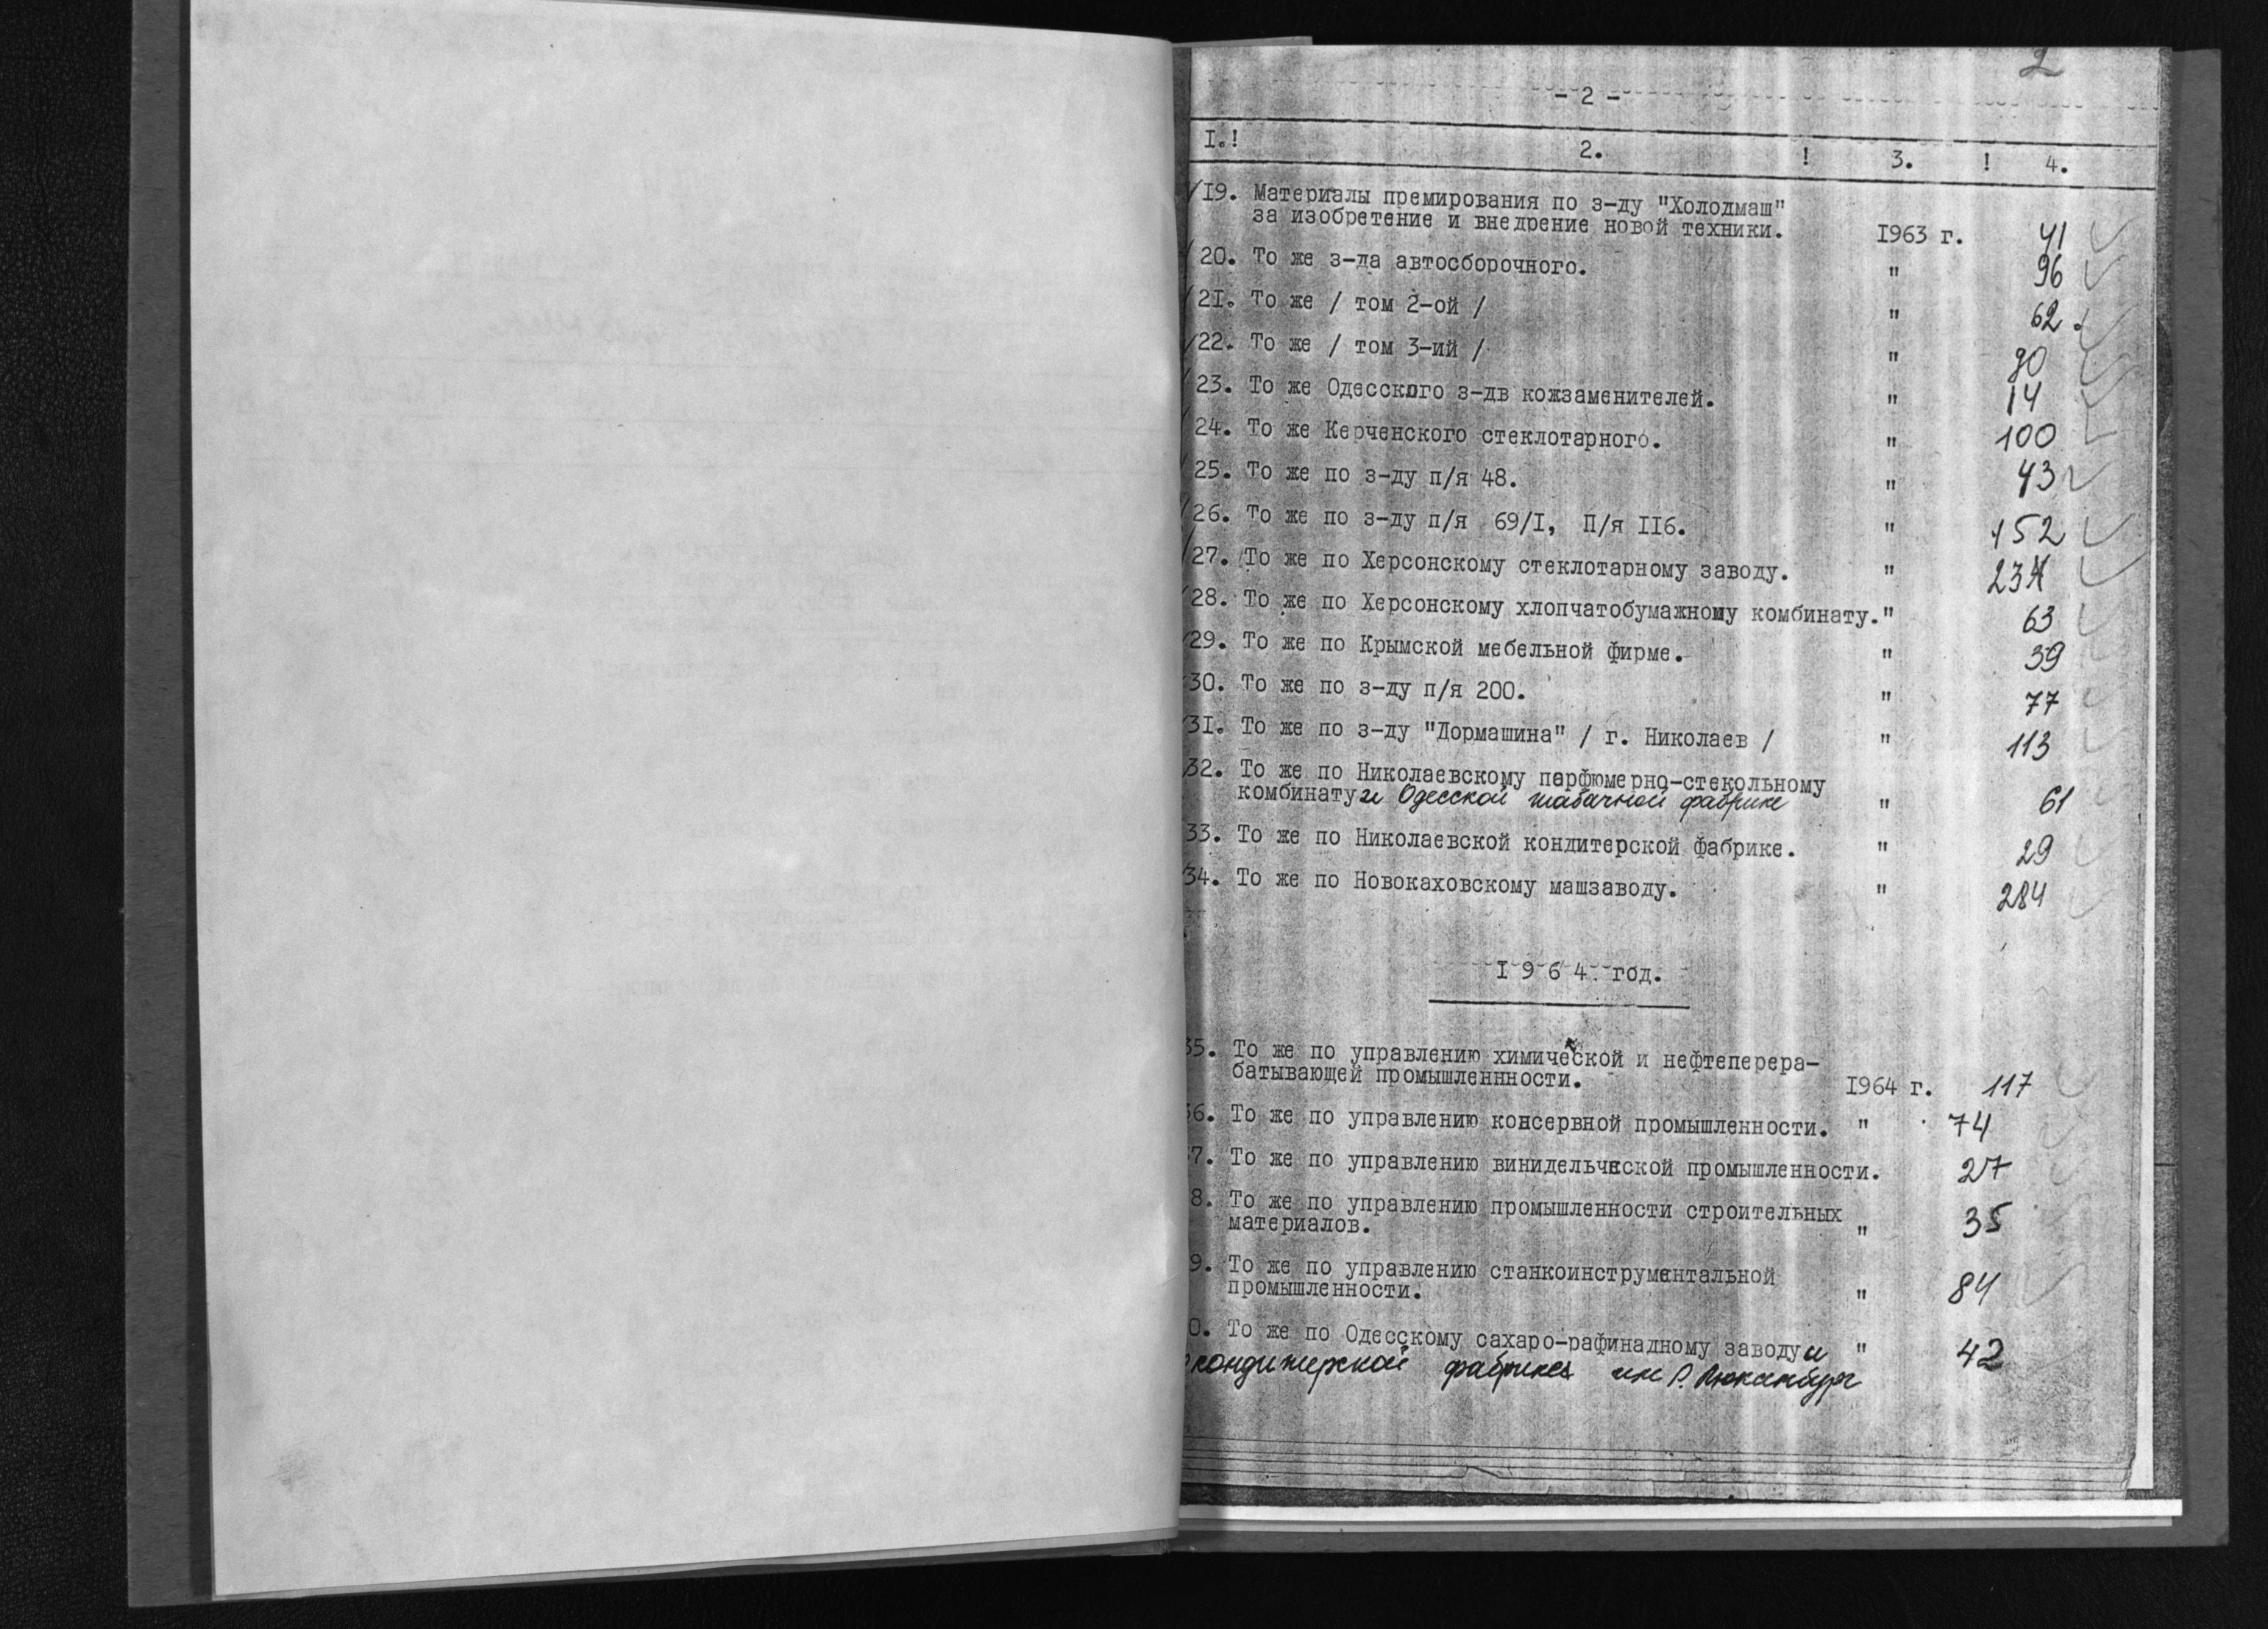 2
- 2 -
I.! 2. ! 3. ! 4.
19. Материалы премирования по з-ду "Холодмаш"
за изобретение и внедрение новой техники. 1963 г. 41
20. То же з-да автосборочного. " 96
21. То же / том 2-ой / " 62
22. То же / том 3-ий / " 90
23. То же Одесского з-дв кожзаменителей. " 14
24. То же Керченского стеклотарного. " 100
25. То же по з-ду п/я 48. " 43
26. То же по з-ду п/я 69/I, П/я II6. " 152
27. То же по Херсонскому стеклотарному заводу. "
28. То же по Херсонскому хлопчатобумажному комбинату. " 63
29. То же по Крымской мебельной фирме. " 39
30. То же по з-ду п/я 200. " 77
31. То же по з-ду "Дормашина" / г. Николаев / " 113
32. То же по Николаевскому парфюмерно-стекольному
комбинату и Одесской табачной фабрике " 61
33. То же по Николаевской кондитерской фабрике. " 29
34. То же по Новокаховскому машзаводу. " 284
I 9 6 4 год.
35. То же по управлению химической и нефтеперера-
батывающей промышленнности. I964 г. 117
36. То же по управлению консервной промышленности. " 74
7. То же по управлению винидельческой промышленности. 27
8. То же по управлению промышленности строительных
материалов. " 35
9. То же по управлению станкоинструментальной
промышленности. " 84
0. То же по Одесскому сахаро-рафинадному заводу и " 42
кондитерской фабрике им Р. Люксембург